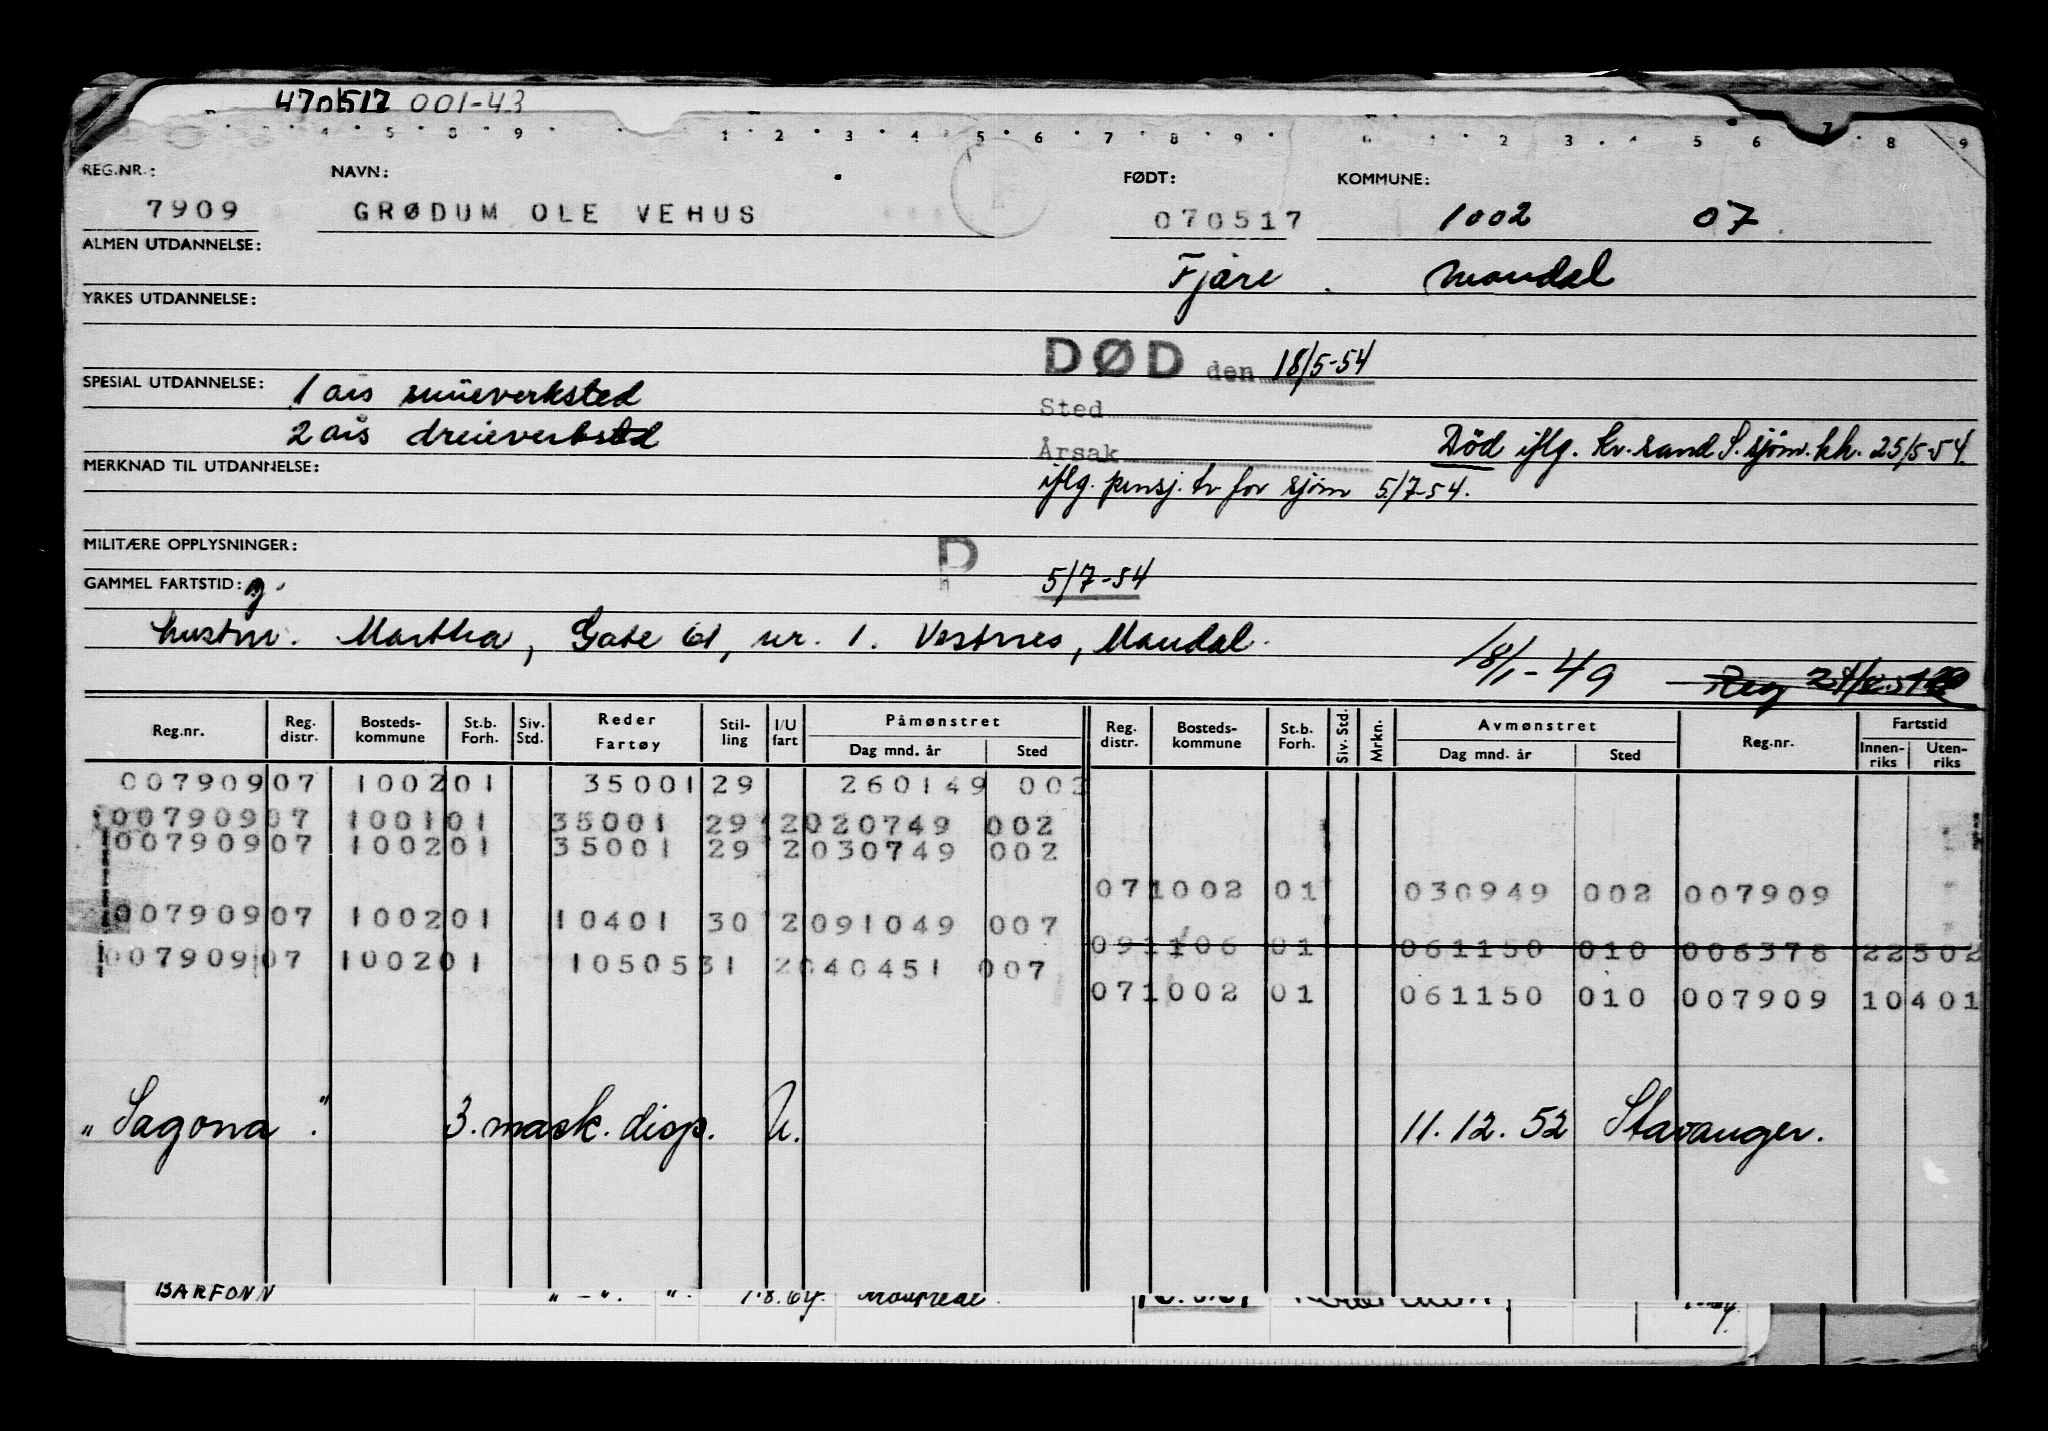 470517 001-43
4 5 8 9 1 2 3 4 5 6 7 8 9 1 2 3 4 5 6 7 8 9
REG.NR.: NAVN: FØDT: KOMMUNE:
7909 GRØDUM OLE VEHUS 070517 1002 07
ALMEN UTDANNELSE: Fjære Mandal
YRKES UTDANNELSE:
DØD den 18/5-54
SPESIAL UTDANNELSE: 1 års smieverksted
Sted
2 års dreieverksted
Årsak Död iflg. Kr.sand S. sjöm.kk. 25/5-54.
MERKNAD TIL UTDANNELSE:
iflg. pensj. tr for sjöm 5/7-54.
MILITÆRE OPPLYSNINGER: D
GAMMEL FARTSTID: 5/7-54
hustru. Martha, Gate 61, nr. 1. Vestnes, Mandal.
18/1-49 Reg
Reg.nr. Reg. distr. Bosteds-kommune St.b. Forh. Siv. Std. Reder Fartøy Stil-ling I/U fart Påmønstret Dag mnd. år Sted Reg. distr. Bosteds-kommune St.b. Forh. Siv. Std. Mrkn. Avmønstret Dag mnd. år Sted Reg.nr. Fartstid Innen-riks Uten-riks
007909 07 1002 01 35001 29 260149 002
007909 07 1001 01 35001 29 2 020749 002
007909 07 1002 01 35001 29 2 030749 002
07 1002 01 030949 002 007909
007909 07 1002 01 10401 30 2 091049 007
09 1106 01 061150 010 006378 22302
007909 07 1002 01 10505 31 2 040451 007
07 1002 01 061150 010 007909 10401
"Sagona". 3. mask. disp. U. 11.12.52 Stavanger.
BARFONN " - ". ". 1.8.64.